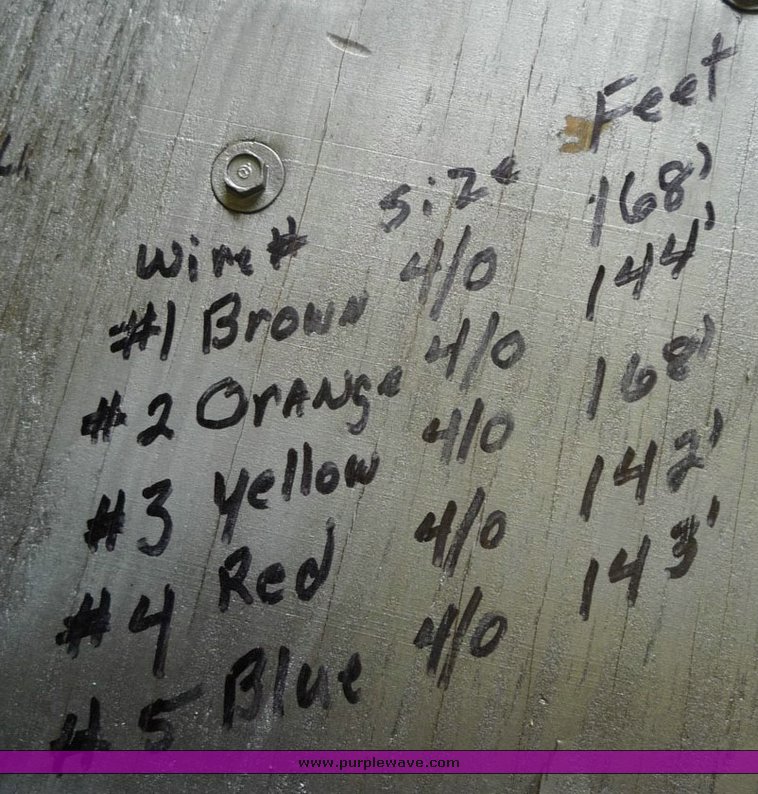 Wire # Size Feet
#1 Brown 4/0 168'
#2 Orange 4/0 144'
#3 Yellow 4/0 168'
#4 Red 4/0 142'
#5 Blue 4/0 143'
www.purplewave.com